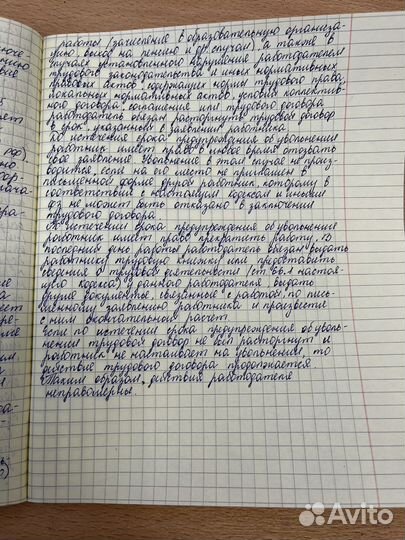 работы (зачисление в образовательную организа-
цию, выход на пенсию и др. случаи), а также в
случаях установленного нарушения работодателем
трудового законодательства и иных нормативных
правовых актов, содержащих нормы трудового права,
локальных нормативных актов, условий коллектив-
ного договора, соглашения или трудового договора
работодатель обязан расторгнуть трудовой договор
в срок, указанный в заявлении работника.
До истечения срока предупреждения об увольнении
работник имеет право в любое время отозвать
свое заявление. Увольнение в этом случае не произ-
водится, если на его место не приглашен в
письменной форме другой работник, которому в
соответствии с настоящим кодексом и иными
фз не может быть отказано в заключении
трудового договора.
По истечении срока предупреждения об увольнении
работник имеет право прекратить работу. В
последний день работы работодатель обязан выдать
работнику трудовую книжку или предоставить
сведения о трудовой деятельности (ст. 66.1 настоя-
щего кодекса) у данного работодателя, выдать
другие документы, связанные с работой, по пись-
менному заявлению работника и произвести
с ним окончательный расчет.
Если по истечении срока предупреждения об уволь-
нении трудовой договор не был расторгнут и
работник не настаивает на увольнении, то
действие трудового договора продолжается.
Таким образом, действия работодателя
неправомерны.
РФ).
Avito